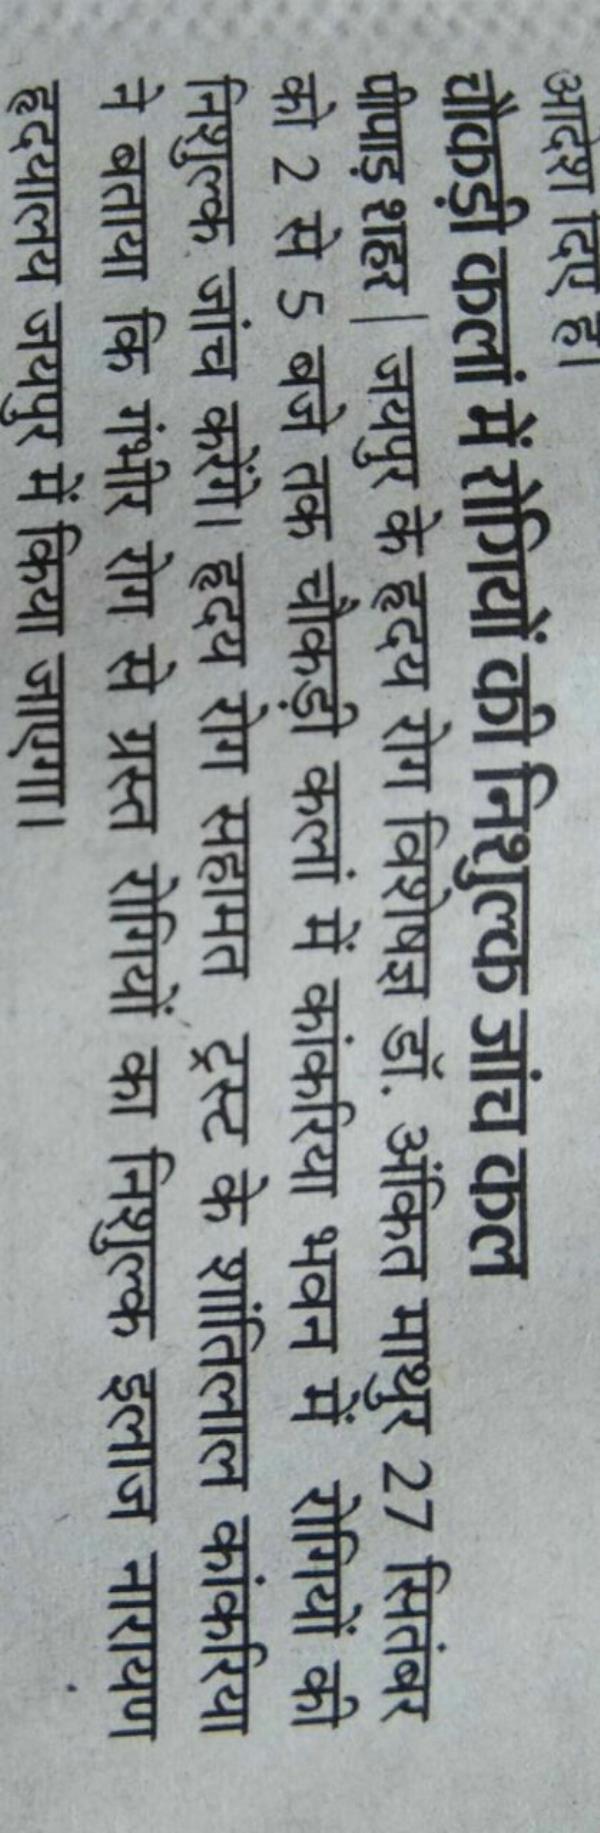 आदेश दिए हैं।
चौकड़ी कलां में रोगियों की निशुल्क जांच कल
पीपाड़ शहर | जयपुर के हृदय रोग विशेषज्ञ डॉ. अंकित माथुर 27 सितंबर
को 2 से 5 बजे तक चौकड़ी कलां में कांकरिया भवन में रोगियों की
निशुल्क जांच करेंगे। हृदय रोग सहामत ट्रस्ट के शांतिलाल कांकरिया
ने बताया कि गंभीर रोग से ग्रस्त रोगियों का निशुल्क इलाज नारायण
हृदयालय जयपुर में किया जाएगा।